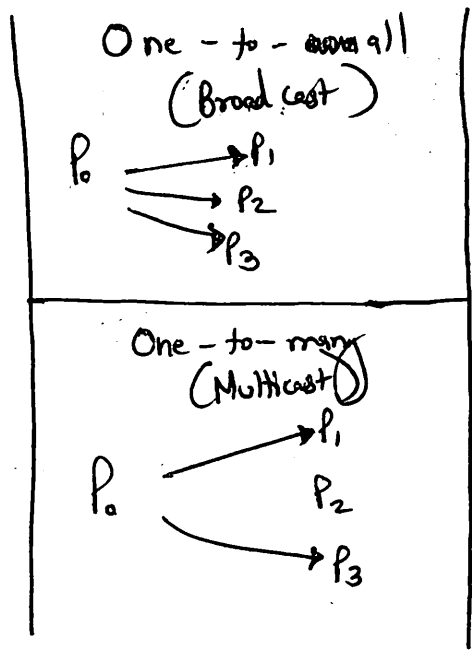 One - to - all
(Broadcast)
P₀
P₁
P₂
P₃
One - to - many
(Multicast)
P₀
P₁
P₂
P₃